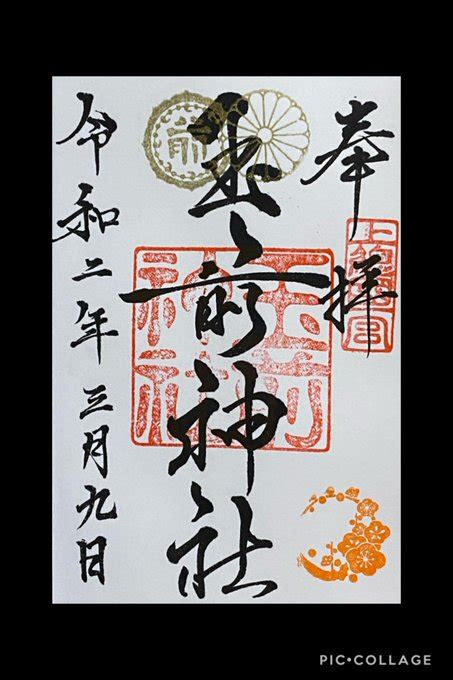 奉拝
玉前神社
玉前神社
令和二年三月九日
PIC•COLLAGE